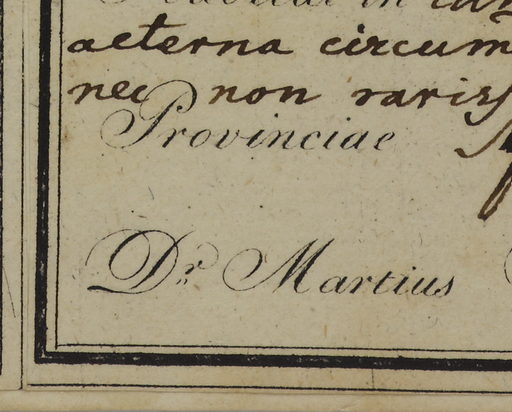 in
aeterna circum
nec non rariss
Provinciae
Dr. Martius